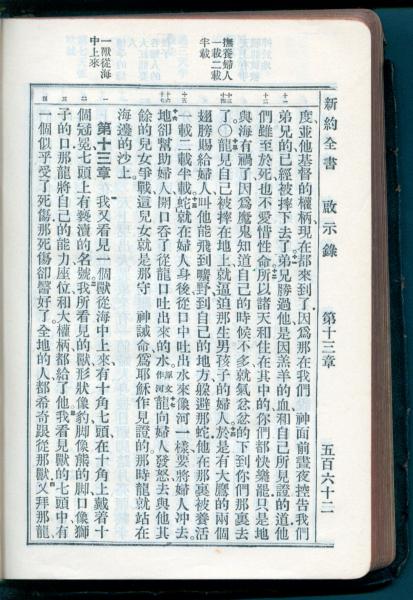 新約全書　啟示錄　第十三章　五百六十二
撫養婦人
一載二載
半載
一獸從海
中上來
度並他基督的權柄現在都來到了因爲那在我們　神面前晝夜控告我們
弟兄的已經被摔下去了弟兄勝過他是因羔羊的血和自己所見證的道他
們雖至於死也不愛惜性命所以諸天和住在其中的你們都快樂罷只是地
與海有禍了因爲魔鬼知道自己的時候不多就氣忿忿的下到你們那裏去
了○龍見自己被摔在地上就逼迫那生男孩子的婦人於是有大鷹的兩個
翅膀賜給婦人叫他能飛到曠野到自己的地方躲避那蛇他在那裏被養活
一載二載半載蛇就在婦人身後從口中吐出水來像河一樣要將婦人冲去
地卻幫助婦人開口吞了從龍口吐出來的水原文作河龍向婦人發怒去與他其
餘的兒女爭戰這兒女就是那守　神誡命爲耶穌作見證的那時龍就站在
海邊的沙上
第十三章　我又看見一個獸從海中上來有十角七頭在十角上戴着十
個冠冕七頭上有褻瀆的名號我所看見的獸形狀像豹脚像熊的脚口像獅
子的口那龍將自己的能力座位和大權柄都給了他我看見獸的七頭中有
一個似乎受了死傷那死傷卻醫好了全地的人都希奇跟從那獸又拜那龍